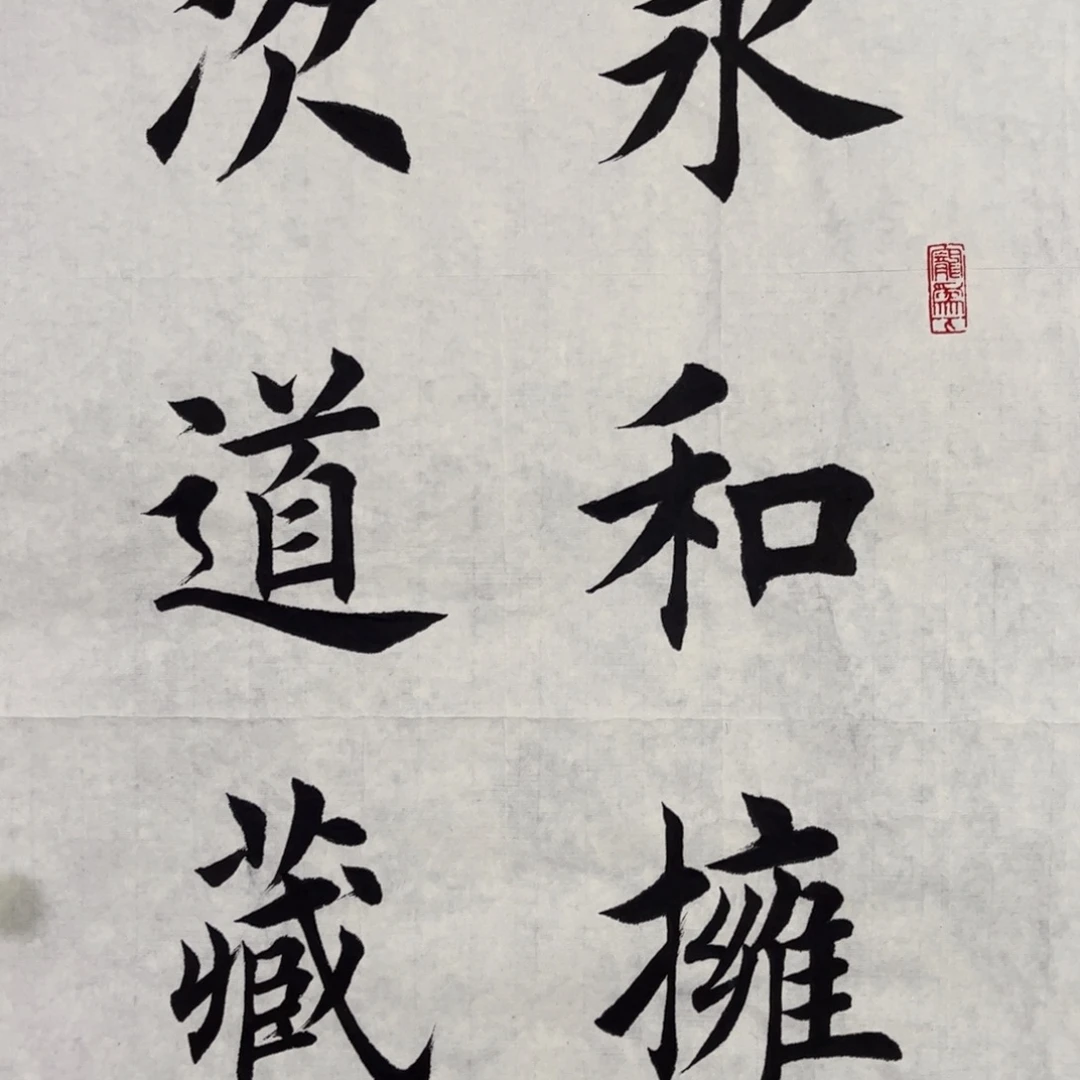 永和擁
次道藏